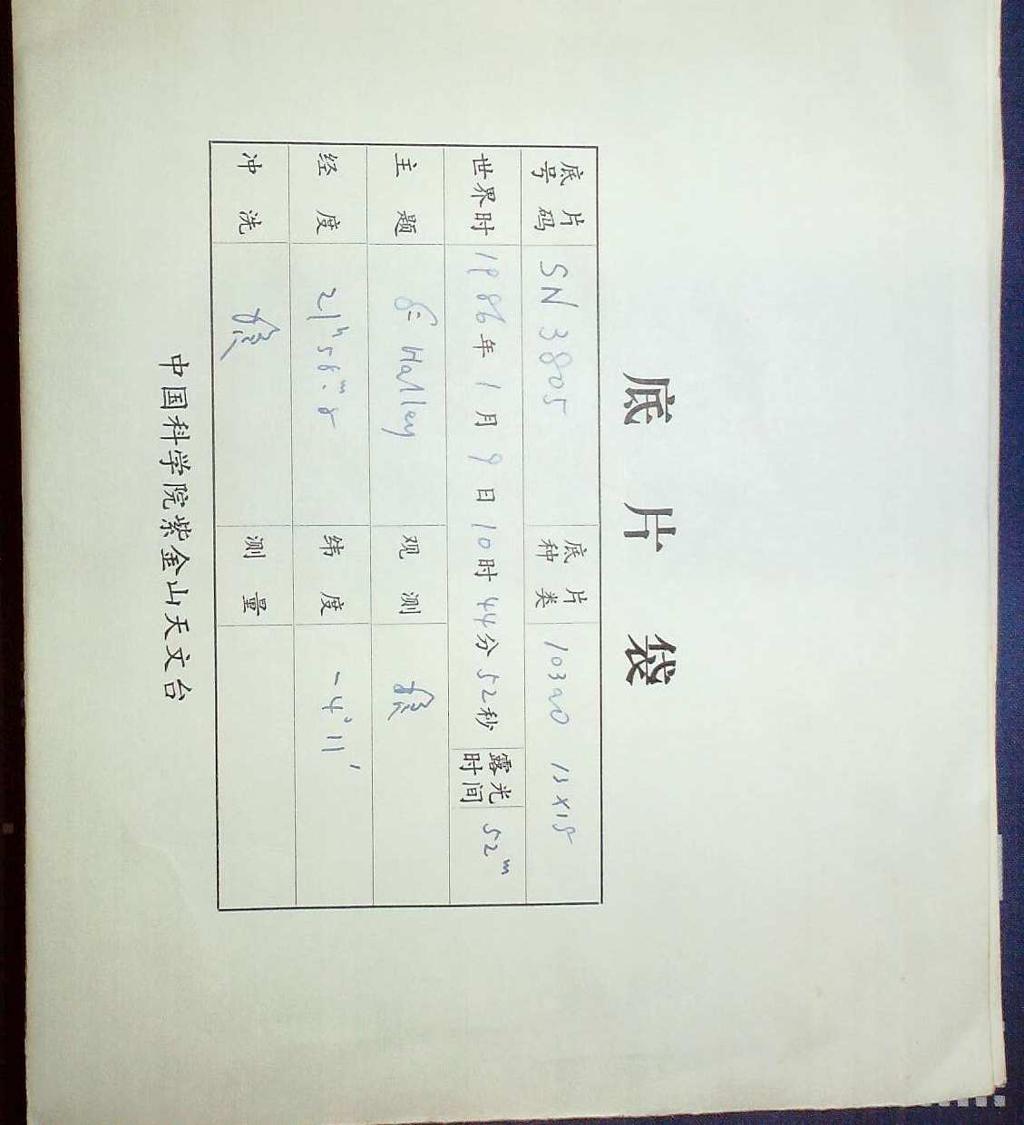 底片袋
底片号码 SN 3805 底片种类 103aO 13×18
世界时 1986年1月9日10时44分52秒 露光时间 52ᵐ
主题 Halley 观测
经度 21ʰ56ᵐ.8 纬度 -4°11′
冲洗 测量
中国科学院紫金山天文台